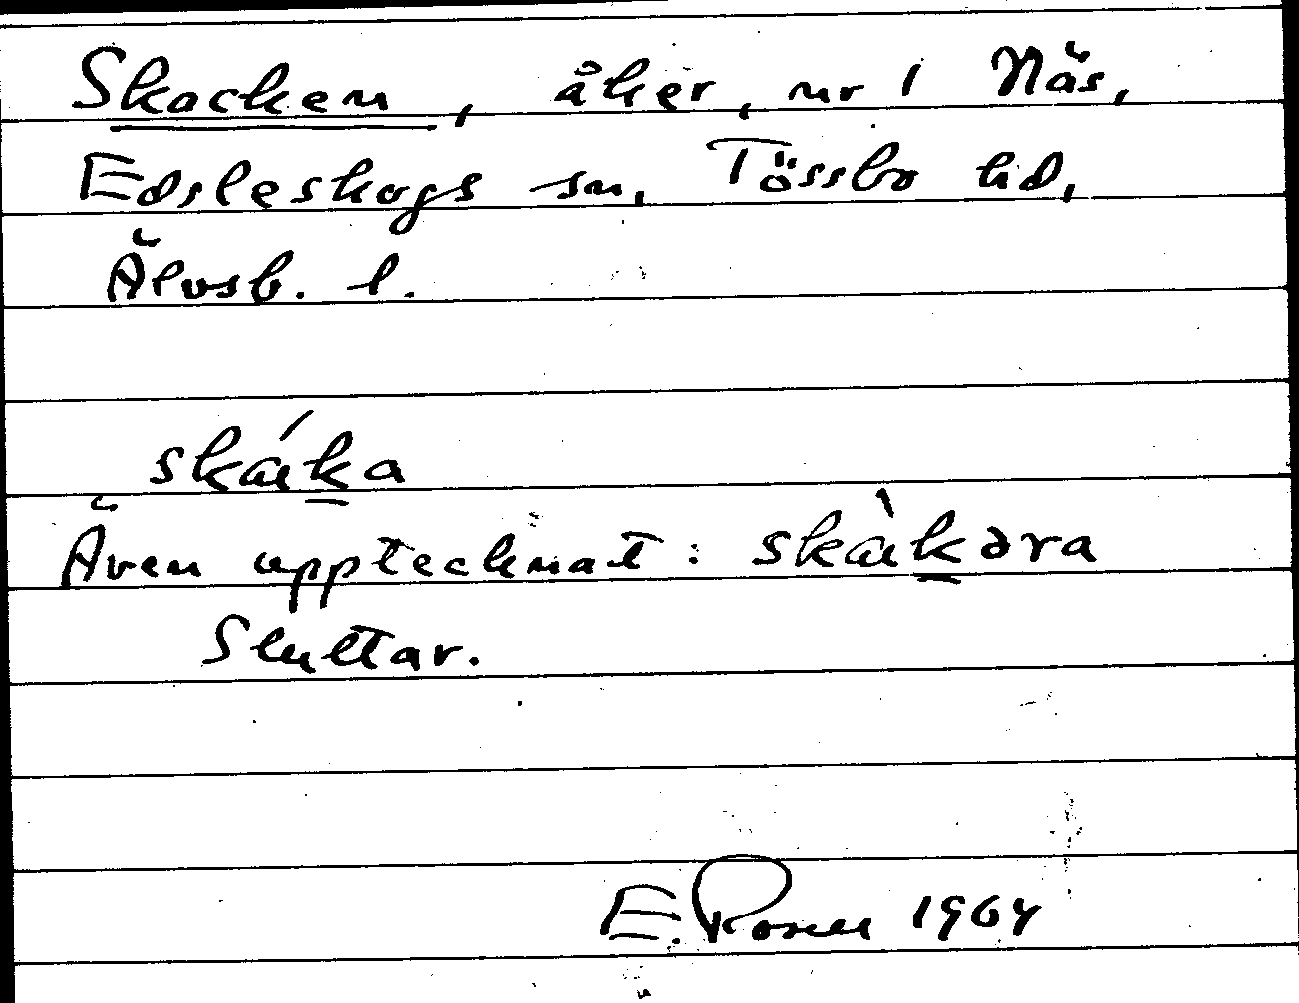 Skacken, åker, nr 1 Näs,
Edsleskogs sn, Tössbo hd,
Älvsb. l.
skák̲a
Även upptecknat: skàk̲əra
Sluttar.
E. Rosen 1964